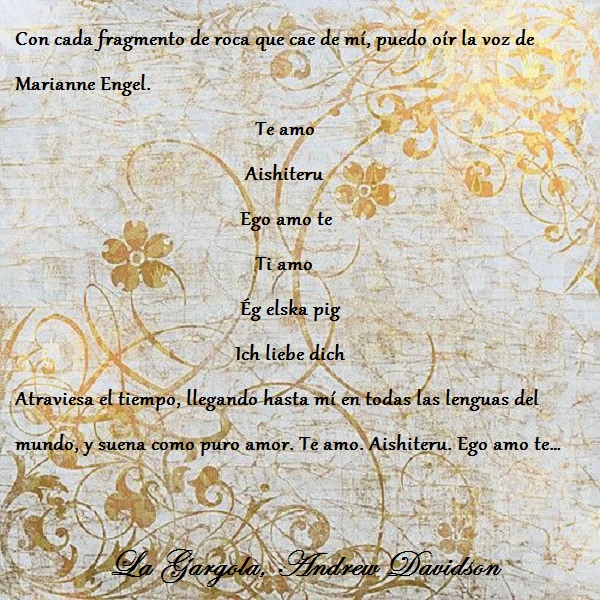 Con cada fragmento de roca que cae de mí, puedo oír la voz de
Marianne Engel.
Te amo
Aishiteru
Ego amo te
Ti amo
Ég elska pig
Ich liebe dich
Atraviesa el tiempo, llegando hasta mí en todas las lenguas del
mundo, y suena como puro amor. Te amo. Aishiteru. Ego amo te...
La Gargola, Andrew Davidson